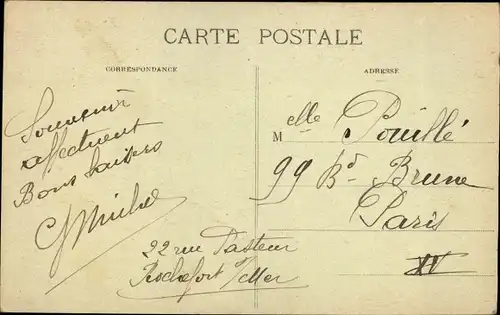 CARTE POSTALE
CORRESPONDANCE
ADRESSE
Souvenir
affectueux
Bons baisers
22 rue Pasteur
Rochefort s/Mer
Melle Pouillé
99 Bd Brune
Paris
XV